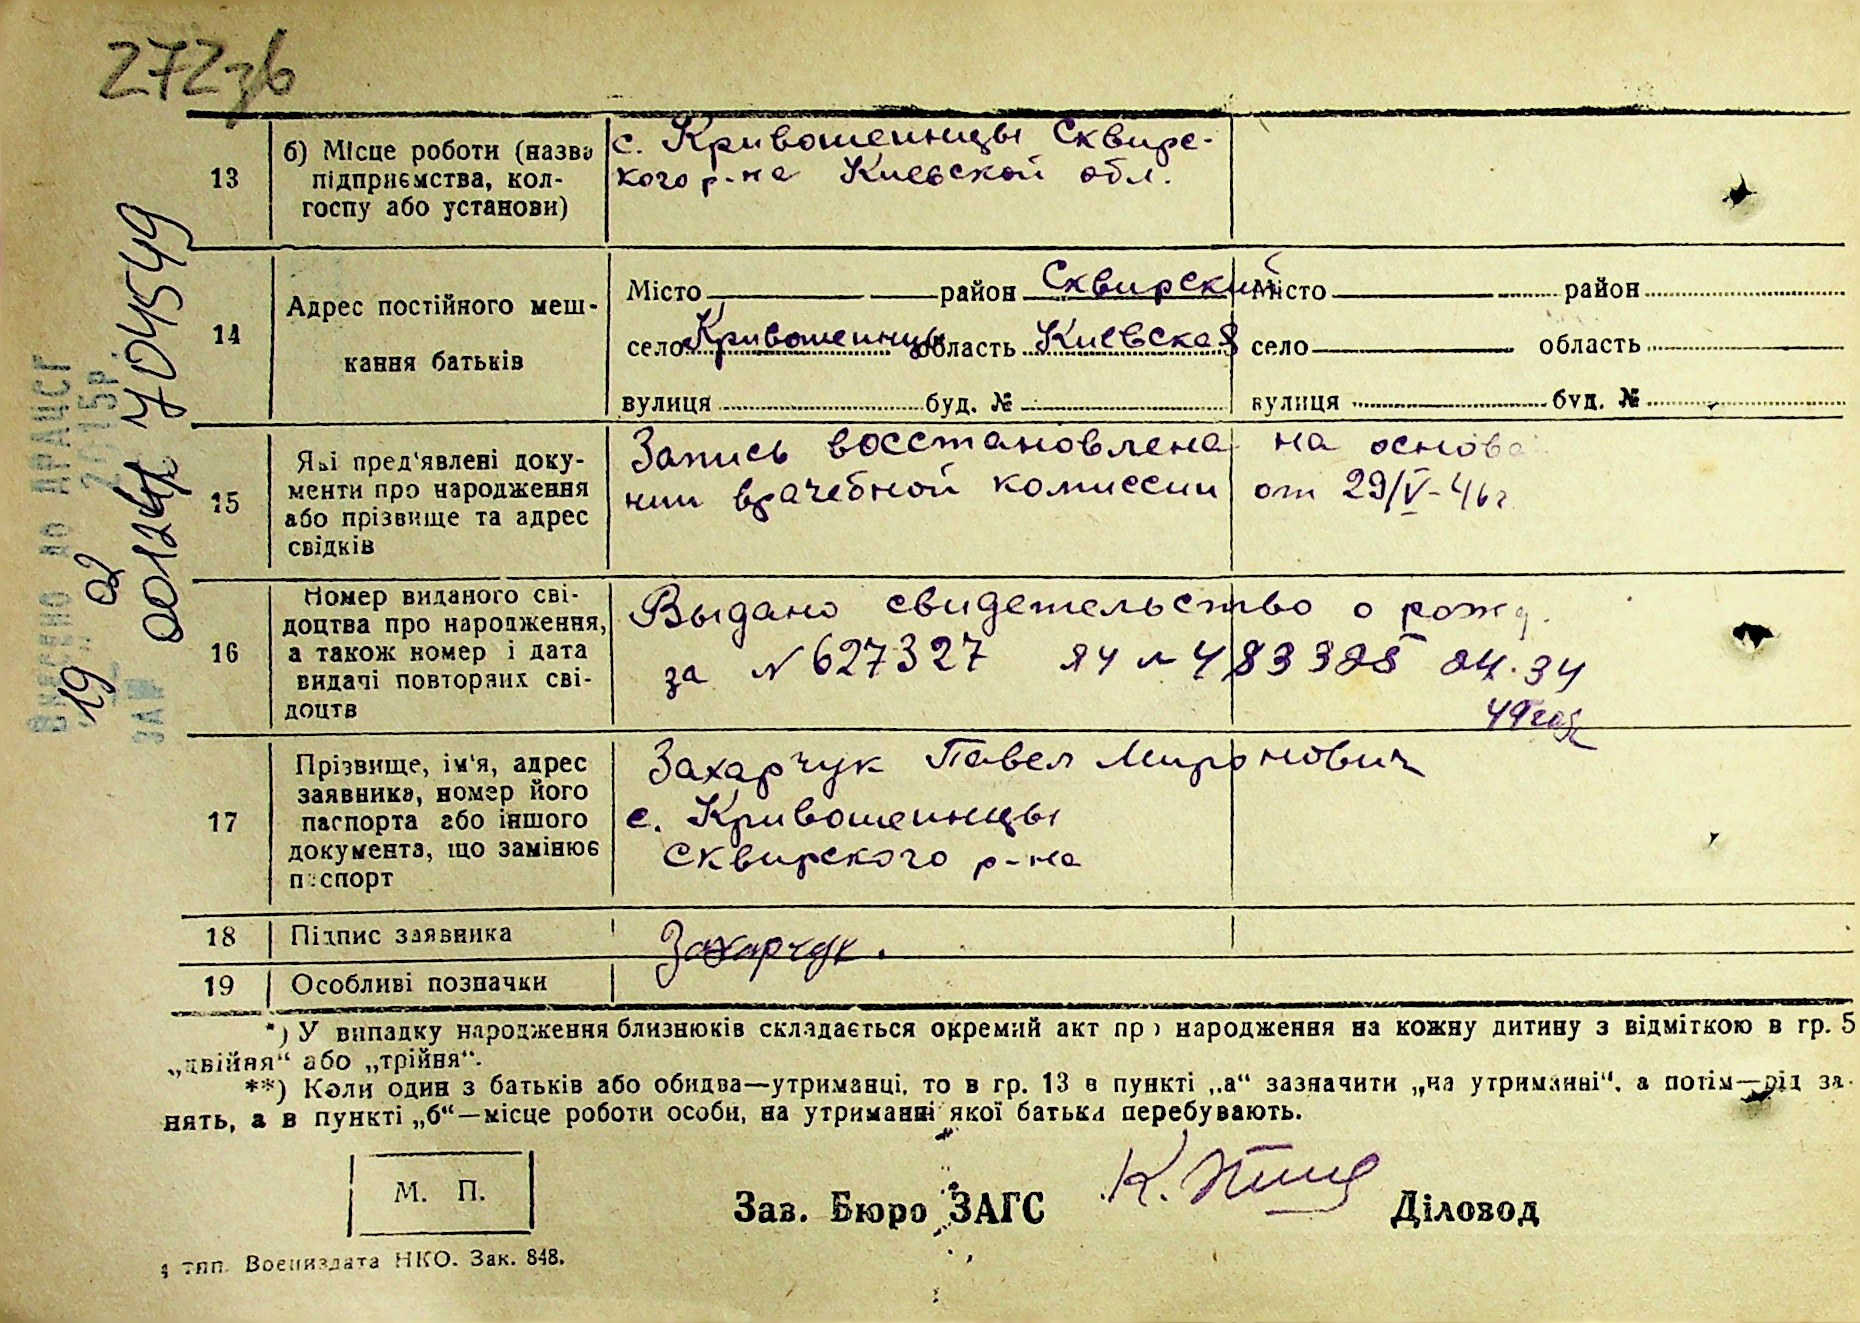 272зв
13
б) Місце роботи (назва
підприємства, кол-
госпу або установи)
с. Кривошеинцы Сквирс-
кого р-на Киевской обл.
14
Адрес постійного меш-
кання батьків
Місто район Сквирский
село Кривошеинцы область Киевская
вулиця буд. №
Місто район
село область
вулиця буд. №
15
Які пред'явлені доку-
менти про народження
або прізвище та адрес
свідків
Запись восстановлена на основа
нии врачебной комиссии от 29/V-46г
16
Номер виданого сві-
доцтва про народження,
а також номер і дата
видачі повторних сві-
доцтв
Выдано свидетельство о рожд.
за № 627327
17
Прізвище, ім'я, адрес
заявника, номер його
паспорта або іншого
документа, що замінює
паспорт
Захарчук Павел Миронович
с. Кривошеинцы
Сквирского р-на
18
Підпис заявника
Захарчук.
19
Особливі позначки
*) У випадку народження близнюків складається окремий акт про народження на кожну дитину з відміткою в гр. 5
„двійня“ або „трійня“.
**) Коли один з батьків або обидва—утриманці, то в гр. 13 в пункті „а“ зазначити „на утриманні“, а потім—рід за-
нять, а в пункті „б“—місце роботи особи, на утриманні якої батьки перебувають.
М. П.
Зав. Бюро ЗАГС
Діловод
тип. Воениздата НКО. Зак. 848.
ВНЕСЕНО ДО ДРАЦСГ
19 02 2015р.
00124 704549